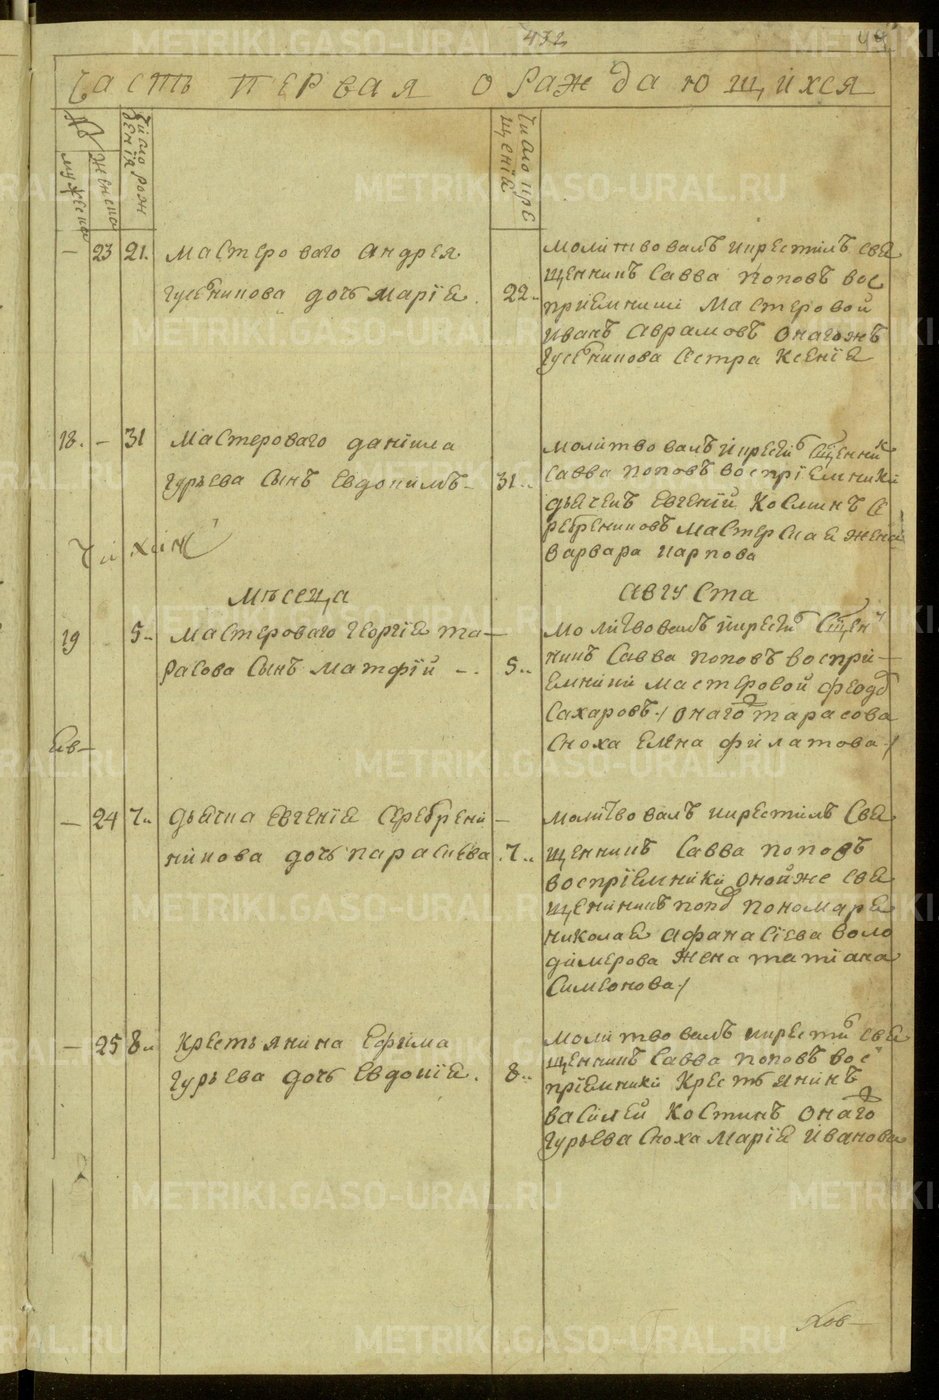 432
Часть первая о раждающихся
№
мужеска
женска
Число рождения
Число крещения
— 23 21. Мастероваго Андрея
Гусѣникова дочь Марїя.
22.
молитвовалъ икрестилъ свя
щенникъ Савва Поповъ вос
прїемники Мастеровой
Иванъ Аврамовъ онагожъ
Гусѣникова сестра Ксенїя
18. — 31 Мастероваго Данїила
Гурьева сынъ Евдокимъ
31..
молитвовалъ икрести Сщенникъ
Савва Поповъ воспрїемники
дьячекъ Евгенїй Косминъ Се
ребрениковъ мастерская жена
Варвара Карпова
Мѣсеца Августа
19 5 Мастероваго Георгїя Та—
расова сынъ Матфїй
5..
Молитвовалъ икрести Сщен
никъ Савва Поповъ воспри—
емники мастеровой Феодо
Сахаровъ / онаго Тарасова
сноха Елена Филатова /
— 24 7 дьячка Евгенїя Серебрени—
никова дочь Параскева
.7..
Молитвовалъ икрестилъ Свя
щенникъ Савва Поповъ
воспрїемники онойже свя
щенникъ Попо пономаря
Николая Афанасїева Воло
димерова жена Татїана
Симеонова /
— 25 8 Крестьянина Ефима
Гурьева дочь Евдокїя.
8..
молитвовалъ икрести свя
щенникъ Савва Поповъ вос
прїемники Крестьянинъ
Василей Костинъ онаго
Гурьева сноха Марїя Иванова